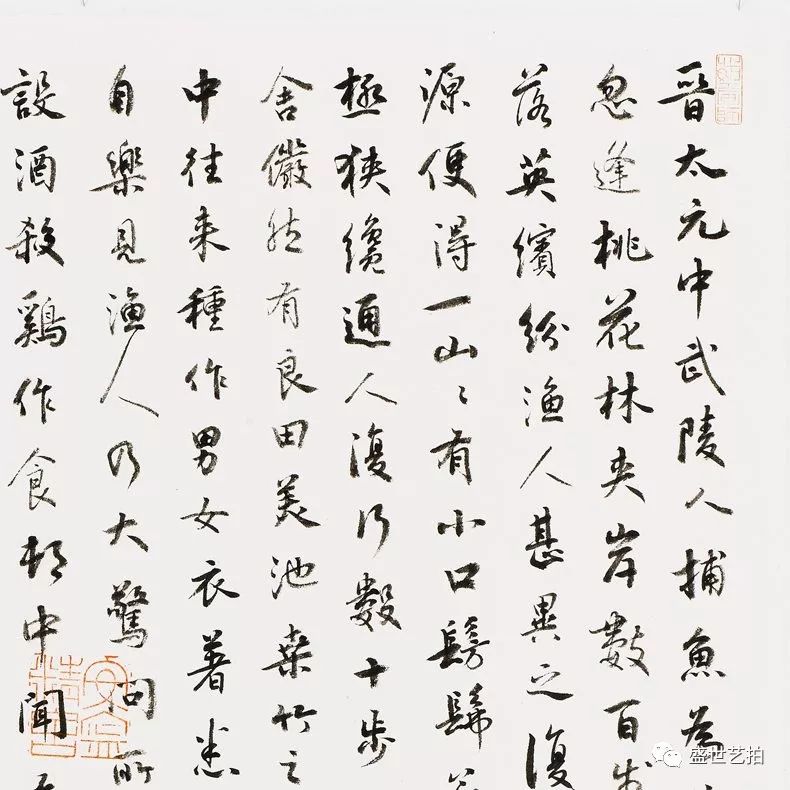 晉太元中武陵人捕魚為
忽逢桃花林夾岸數百步
落英繽紛漁人甚異之復
源便得一山〻有小口髣髴
極狹纔通人復行數十步
舍儼然有良田美池桑竹之
中往来種作男女衣著悉
自樂見漁人乃大驚問所
設酒殺鷄作食村中聞
盛世艺拍